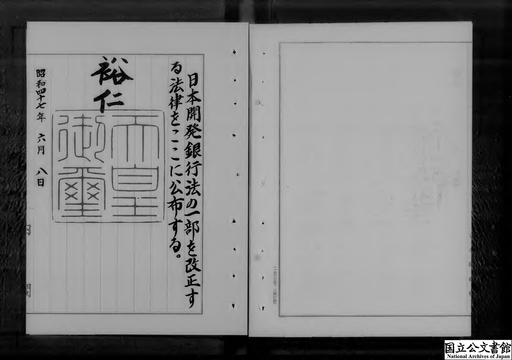 日本開発銀行法の一部を改正す
る法律をここに公布する。
裕仁
天皇
御璽
昭和四十七年 六月 八日
国立公文書館
National Archives of Japan